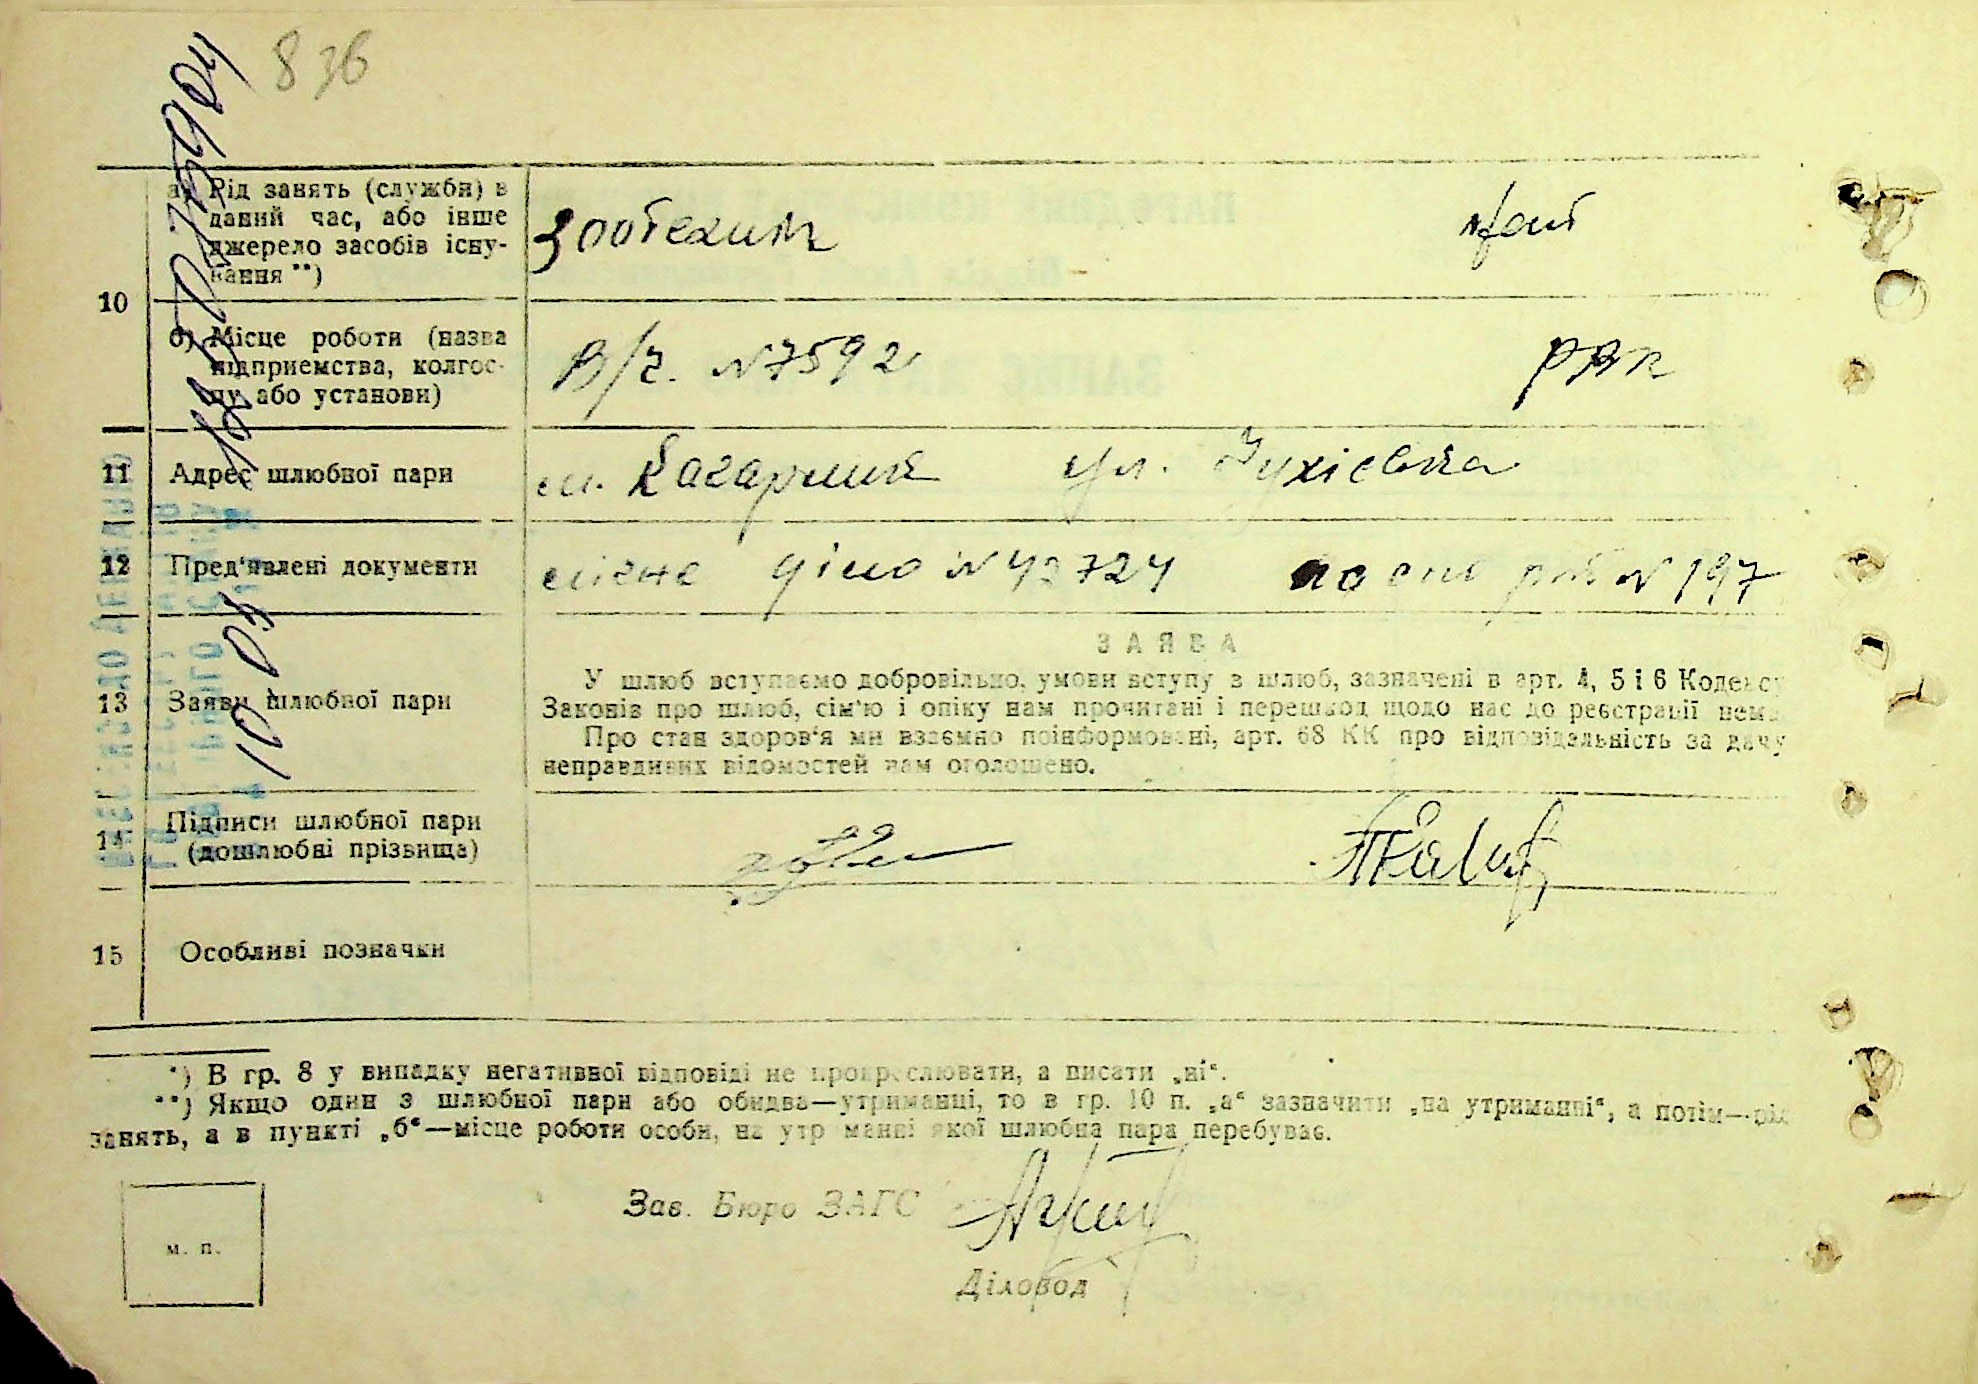 836
10
а) Рід занять (служби) в
даний час, або інше
джерело засобів існу-
вання **)
зоотехнік
б) Місце роботи (назва
підприємства, колгос-
пу або установи)
В/ч. N 7592
РВК
11
Адрес шлюбної пари
м. Кагарлик ул.
12
Пред'явлені документи
N 197
13
Заяви шлюбної пари
ЗАЯВА
У шлюб вступаємо добровільно, умови вступу в шлюб, зазначені в арт. 4, 5 і 6 Кодексу
Законів про шлюб, сім'ю і опіку нам прочитані і перешкод щодо нас до реєстрації нема
Про стан здоров'я ми взаємно поінформовані, арт. 68 КК про відповідальність за дачу
неправдивих відомостей нам оголошено.
14
Підписи шлюбної пари
(дошлюбні прізвища)
15
Особливі позначки
*) В гр. 8 у випадку негативної відповіді не прокреслювати, а писати „ні“.
**) Якщо один з шлюбної пари або обидва—утриманці, то в гр. 10 п. „а“ зазначити „на утриманні“, а потім—рід
занять, а в пункті „б“—місце роботи особи, на утриманні якої шлюбна пара перебуває.
Зав. Бюро ЗАГС
м. п.
Діловод